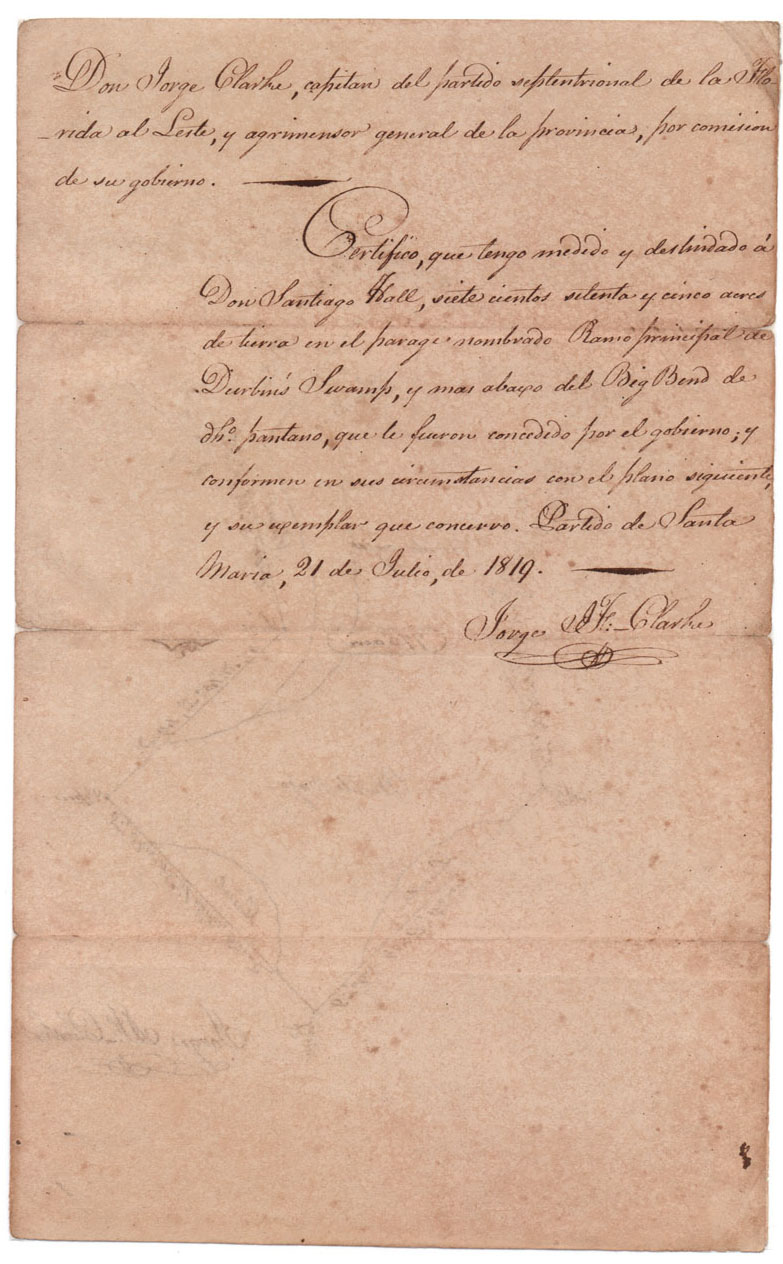 Don Jorge Clarke, capitan del partido septentrional de la Flo
-rida al Leste, y agrimensor general de la provincia, por comision
de su gobierno.
Certifico, que tengo medido y deslindado á
Don Santiago Hall, siete cientos setenta y cinco acres
de tierra en el parage nombrado Ramo principal de
Durbin's Swamp, y mas abaxo del Big Bend de
dho. pantano, que le fueron concedido por el gobierno; y
conformen en sus circumstancias con el plano siguiente,
y su exemplar que concervo. Partido de Santa
Maria, 21 de Julio, de 1819.
Jorge J. F. Clarke